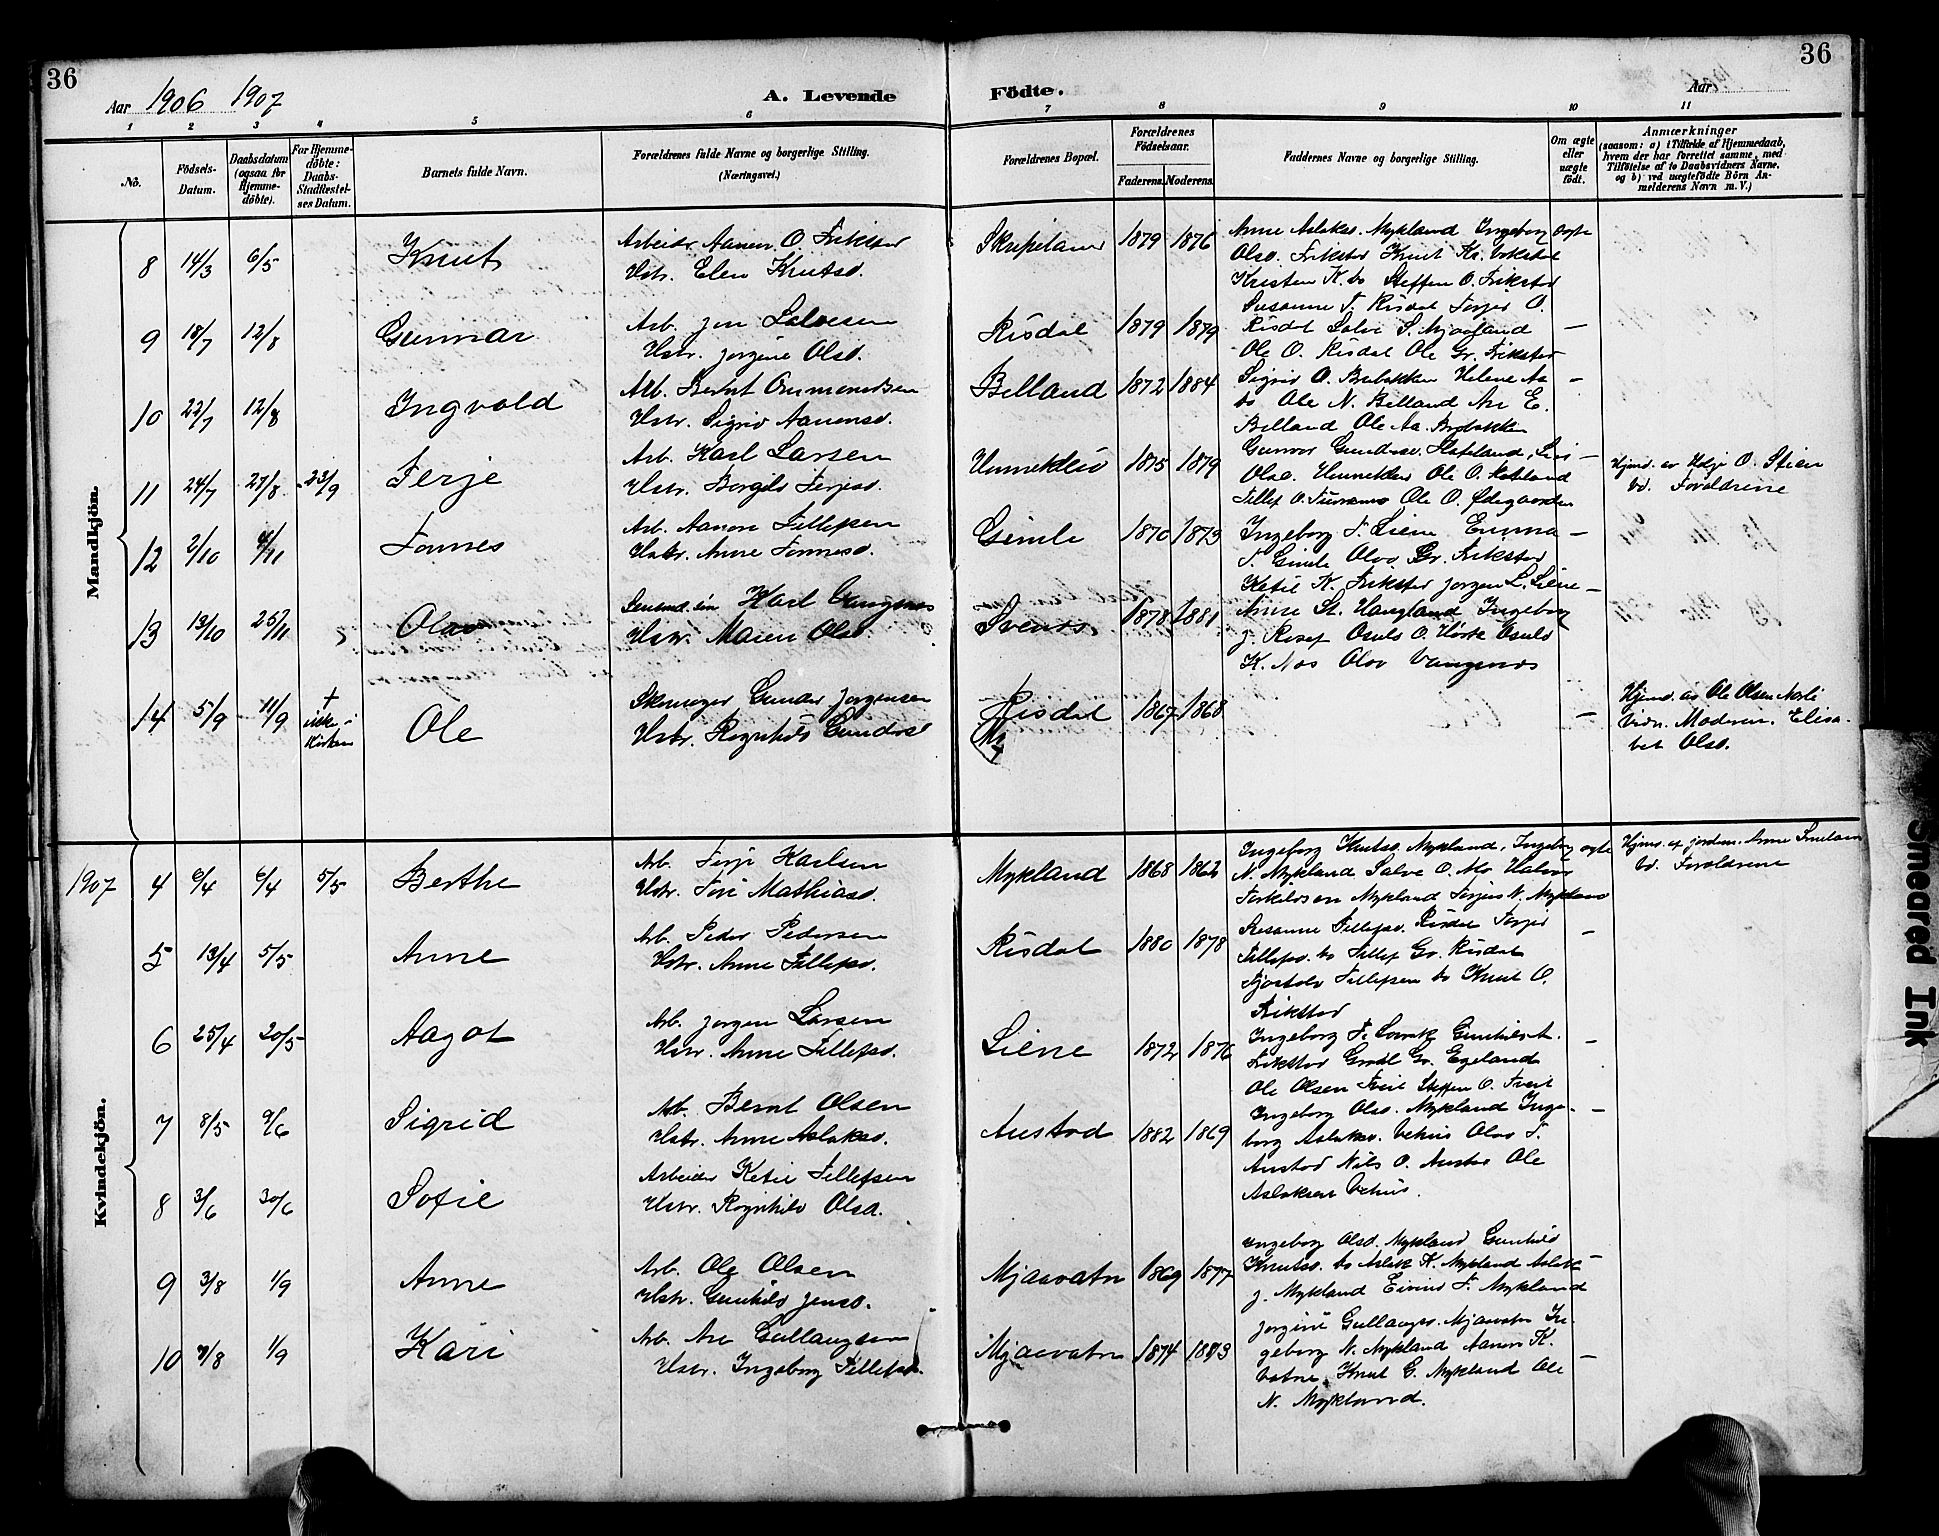 36
36
Aar 1906 1907
A. Levende Födte.
Aar
1 2 3 4 5 6 7 8 9 10 11
No.
Födsels-Datum.
Daabsdatum (ogsaa for Hjemmedöbte).
For Hjemmedöbte: Daabs-Stadfæstelses Datum.
Barnets fulde Navn.
Forældrenes fulde Navne og borgerlige Stilling. (Næringsvei.)
Forældrenes Bopæl.
Forældrenes Födselsaar.
Faderens. Moderens.
Faddernes Navne og borgerlige Stilling.
Om ægte eller uægte födt.
Anmærkninger
(saasom: a) i Tilfælde af Hjemmedaab, hvem der har forrettet samme, med Tilföielse af to Daabsvidners Navne. og b) ved uægtefödte Börn Anmelderens Navn m. V.)
Mandkjön.
8 14/3 6/5 Knut
Arbeider Aanen O. Frikstad
Hstr. Elen Knutsd.
1879 1876
Anne Aslaksd. Mykland Ingeborg ægte
Olsd. Frikstad Knut
Kristen K. ds Steffen O. Frikstad
9 18/7 12/8 Gunnar
Arb. Jon Salvesen
Hstr. Jorgine Olsd.
Risdal 1879 1879
Susanne T. Risdal Terjer O.
Risdal Salve S. Mjaaland —
Ole O. Risdal Ole Gr. Frikstad
10 22/7 12/8 Ingvald
Arb. Bernt Ommundsen
Hstr. Sigrid Aanensd.
Belland 1872 1884
Sigrid O. Helene Aa —
ds Ole N. Belland Are E.
Belland Ole Aa.
11 24/7 27/8 23/9 Terje
Arb. Karl Larsen
Hstr. Borgild Terjesd.
1875 1879
Gunvor Gundersd. —
Olsd. Ole O.
Tellef O. Ole O. Ødegaarden
Hjmd. av O. Steen
Vd. Forældrene
12 2/10 4/11 Tonnes
Arb. Aanon Tellefsen
Hstr. Anne Tonnesd.
Gimle 1870 1873
Ingeborg T. Liene Emma —
T. Gimle Olav Gr. Frikstad
Ketil K. Frikstad Jorgen L. Liene —
13 13/10 25/11 Olav
Karl
Hstr. Maren Olsd.
1878 1881
Anne St. Haugland Ingeborg
J. Risef Osuld O.
K. Nes Olav
14 5/9 11/9 + ikke i Kirken Ole
Skomager Gunder Jorgensen
Hstr. Ragnhild Gundersd.
Risdal 1867 1868 —
Hjmd. av Ole Olsen
Vidn. Moderen. Elisabet Olsd.
Kvindekjön.
1907 4 6/4 6/4 5/5 Berthe
Arb. Terje Karlsen
Hstr. Tori Mathiasd.
Mykland 1868 1862
Ingeborg Knutsd. Mykland, Ingeborg ægte
N. Mykland Salve O. Mo Halvor
Terkildsen Mykland Terjus N. Mykland
Hjmd. af jordm. Anne
Vd. Forældrene
5 13/4 5/5 Anne
Arb. Peder Pedersen
Hstr. Anne Tellefsd.
Risdal 1880 1878
Susanne Tellefsd. Risdal Terjer —
Tellefsd. ds Tellef Gr. Risdal
Fjostolv Tellefsen ds Knut O.
Frikstad
6 25/4 20/5 Aagot
Arb. Jorgen Larsen
Hstr. Anne Tellefsd.
Liene 1872 1876
Ingeborg T. Gunhild A. —
Frikstad Gr. Egeland
Ole Olsen Tveit Steffen O. Tveit
7 8/5 9/6 Sigrid
Arb. Bernt Olsen
Hstr. Anne Aslaksd.
Austad 1882 1869
Ingeborg Olsd. Mykland Inge- —
borg Aslaksd. Vehus Olav T.
Austad Nils O. Austad Ole
Aslaksen Vehus.
8 3/6 30/6 Sofie
Arbeider Ketil Tellefsen
Hstr. Ragnhild Olsd.
9 3/8 1/9 Anne
Arb. Ole Olsen
Hstr. Gunhild Jensd.
Mjaavatn 1869 1877
Ingeborg Olsd. Mykland Gunhild
Knutsd. ds Aslak K. Mykland Aslak —
J. Mykland Eivind T. Mykland
10 7/8 1/9 Kari
Arb. Are Gullaugsen
Hstr. Ingeborg Tellefsd.
Mjaavatn 1874 1873
Jorgine Gullaugsd. Mjaavatn In-
geborg N. Mykland Aanon K.
Vatne, Knut G. Mykland Ole —
N. Mykland.
Smeared Ink